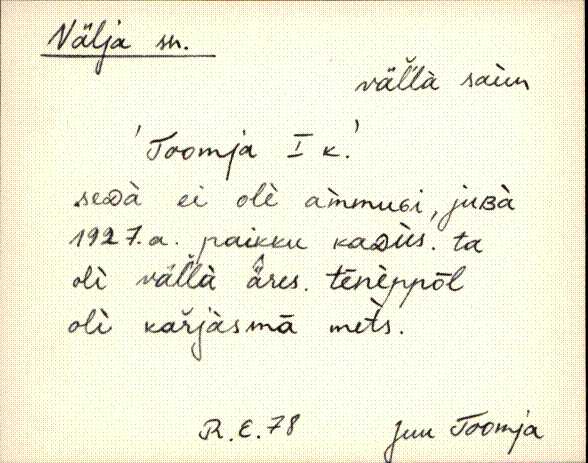 Välja sn.
väl̆l̆à saùn
'Toomja I k.'
seᴅà ei olè am̀muɢi, juʙà
1927.a. paikku kaᴅùs. ta
olì väl̆l̆à ä̂res. tēnèppōl
olì kar̆jàsmā met̀s.
R.E.78 Juu Toomja